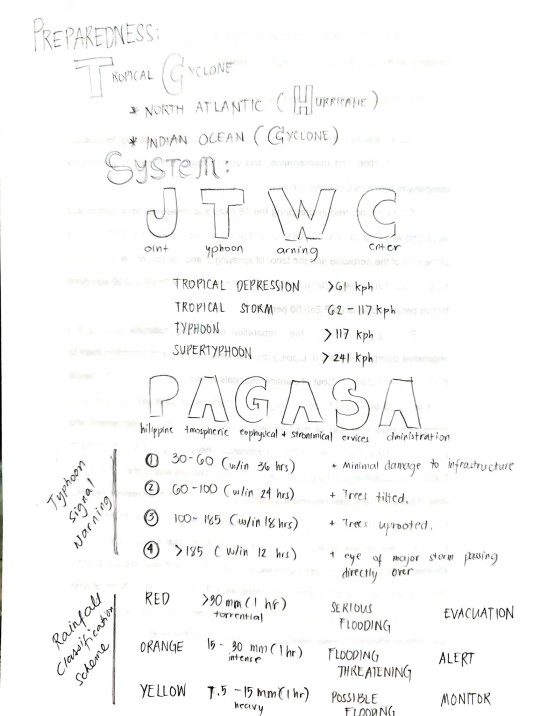 PREPAREDNESS:
TROPICAL CYCLONE
* NORTH ATLANTIC (HURRICANE)
* INDIAN OCEAN (CYCLONE)
SYSTEM:
J T W C
oint yphoon arning enter
TROPICAL DEPRESSION >61 kph
TROPICAL STORM 62 - 117 kph
TYPHOON >117 kph
SUPERTYPHOON >241 kph
PAGASA
hilippine tmospheric eophysical + stronomical ervices dministration
Typhoon Signal Warning
① 30-60 (w/in 36 hrs) + Minimal damage to infrastructure
② 60-100 (w/in 24 hrs) + Trees tilted.
③ 100-185 (w/in 18 hrs) + Trees uprooted.
④ >185 (w/in 12 hrs) + eye of major storm passing
directly over
Rainfall Classification Scheme
RED >30 mm (1 hr) SERIOUS EVACUATION
torrential FLOODING
ORANGE 15 - 30 mm (1 hr) FLOODING ALERT
intense THREATENING
YELLOW 7.5 - 15 mm (1 hr) POSSIBLE MONITOR
heavy FLOODING